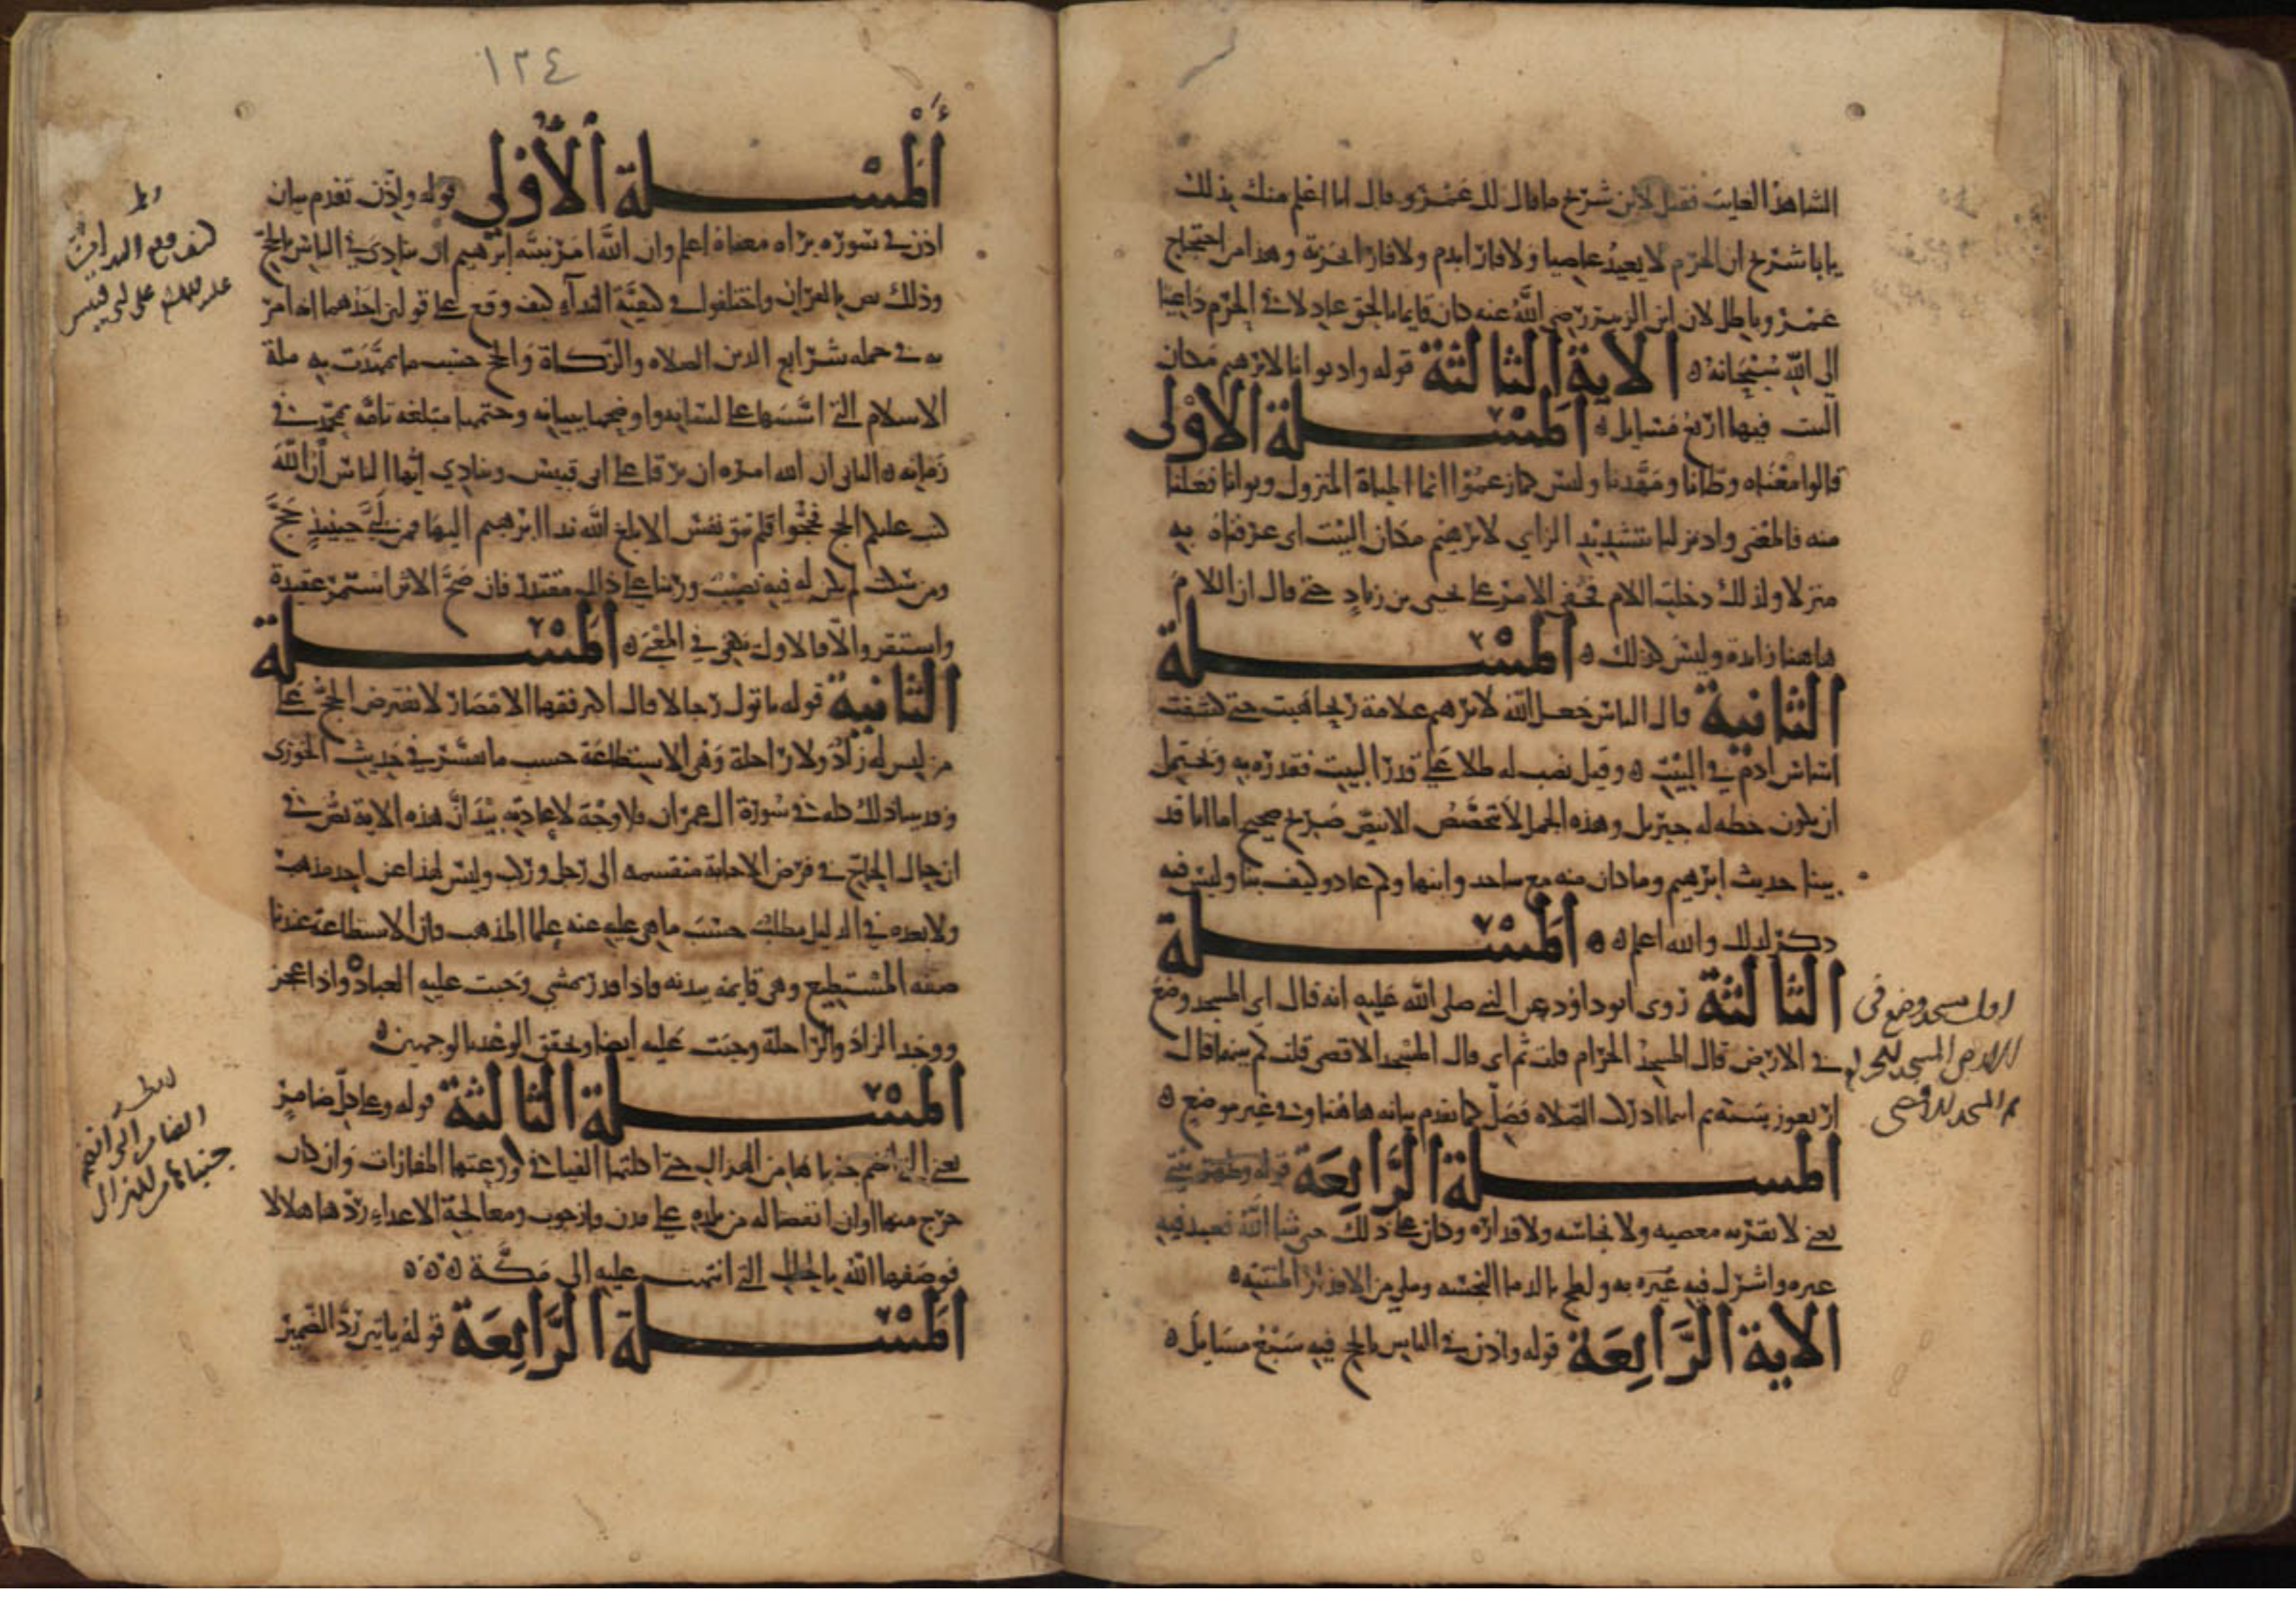 الشاهد الغايب فقيل لابن شريح ما قال لك عمرو قال انا اعلم منك بذلك
يابا شريح ان الحرم لا يعيذ عاصيا ولا فارا بدم ولا فارا بخربة وهذا من احتجاج
عمرو باطل لان ابن الزبير رضي الله عنه كان قايما بالحق عادلا في الحرم داعيا
الى الله سبحانه الاية الثالثة قوله واذ بوانا لابرهيم مكان
البيت فيها اربع مسايل المسلة الاولى
قالوا معناه وطانا ومهدنا وليس كما زعموا انما المباة المنزل وبوانا فعلنا
منه فالمعنى واذ نزلنا بتشديد الزاي لابرهيم مكان البيت اى عرفناه به
منزلا ولذلك دخلت اللام فخفي الامر على يحيى بن زياد حتى قال ان اللام
هاهنا زايدة وليس كذلك المسلة
الثانية قال الناس جعل الله لابرهيم علامة ريحا هبت حتى كشفت
اساس ادم في البيت وقيل نصب له ظلا على قدر البيت فقدره به ويحتمل
ان يكون خطه له جبريل وهذه الجمل لا تخصص الا بنص صريح صحيح اما انا قد
بينا حديث ابرهيم وما كان منه مع هاجر وابنها وكم عاد وكيف بنا وليس فيه
ذكر لذلك والله اعلم المسلة
الثالثة روى ابو داود عن النبي صلى الله عليه انه قال اي المسجد وضع
في الارض قال المسجد الحرام قلت ثم اي قال المسجد الاقصى قلت كم بينهما قال
اربعون سنة ثم اينما ادركت الصلاه فصل كما تقدم بيانه هاهنا وفي غير موضع
المسلة الرابعة قوله وطهر بيتي
يعني لا تقربه معصيه ولا نجاسه ولا قذاره وكان على ذلك حتى شا الله فعبد فيه
غيره واشرك فيه غيره به ولطخ بالدما النجسه وملي من الاقذار المنتنه
الاية الرابعة قوله واذن في الناس بالحج فيه سبع مسايل
اول مسجد وضع في
الارض المسجد الحرام
ثم المسجد الاقصى
١٢٤
المسلة الاولى قوله واذن تقدم بيان
اذن في سورة براه معناه اعلم وان الله امر نبيه ابرهيم ان ينادي في الناس بالحج
وذلك نص بالقران واختلفوا في كيفية النداء كيف وقع على قولين احدهما انه امر
به في جمله شرايع الدين الصلاه والزكاة والحج حسب ما تمهدت به ملة
الاسلام التي اسسها على لسانه واوضحها ببيانه وختمها مبلغه تامة بمحمد في
زمانه الثاني ان الله امره ان يرقا على ابى قبيس وينادي ايها الناس ان الله
كتب عليكم الحج فحجوا فلم تبق نفس الا بلغ الله ندا ابرهيم اليها فمن لبى حينيذ حج
ومن سكت لم يكن له فيه نصيب وربنا على ذلك مقتدر فان صح الاثر استمر عقيدة
واستقر والا فالاول يكفي في المعنى المسلة
الثانية قوله ياتوك رجالا قال اكثر فقها الامصار لا يفترض الحج على
من ليس له زاد ولا راحلة وهى الاستطاعة حسب ما تفسر في حديث الخوزى
وقد بينا ذلك كله في سورة ال عمران فلا وجه لاعادته بيد ان هذه الاية نص في
ان حال الحاج في فرض الاجابة منقسمه الى رجل وركب وليس لهذا عن احد مذهب
ولا بعده في الدليل مطلب حسب ما هي عليه عنه علما المذهب فان الاستطاعة عندنا
صفه المستطيع وهي قايمه ببدنه فاذا قدر يمشي وجبت عليه العباده واذا عجز
ووجد الزاد والراحلة وجبت عليه ايضا وتحقق الوعد بالوجهين
المسلة الثالثة قوله وعلى كل ضامر
يعني التي انضم جنباها من الهزال حتى اكلتها الفيافي ورعتها المفازات وان كان
خرج منها اوان انفصاله من بلده على بدن فان حرب ومعالجة الاعداء ردها هلالا
فوصفها الله بالحال التي انتهت عليه الى مكة
المسلة الرابعة قوله ياتين رد الضمير
كيف وقع النداء
على ابى قبيس
الضامر التي انضم
جنباها من الهزال